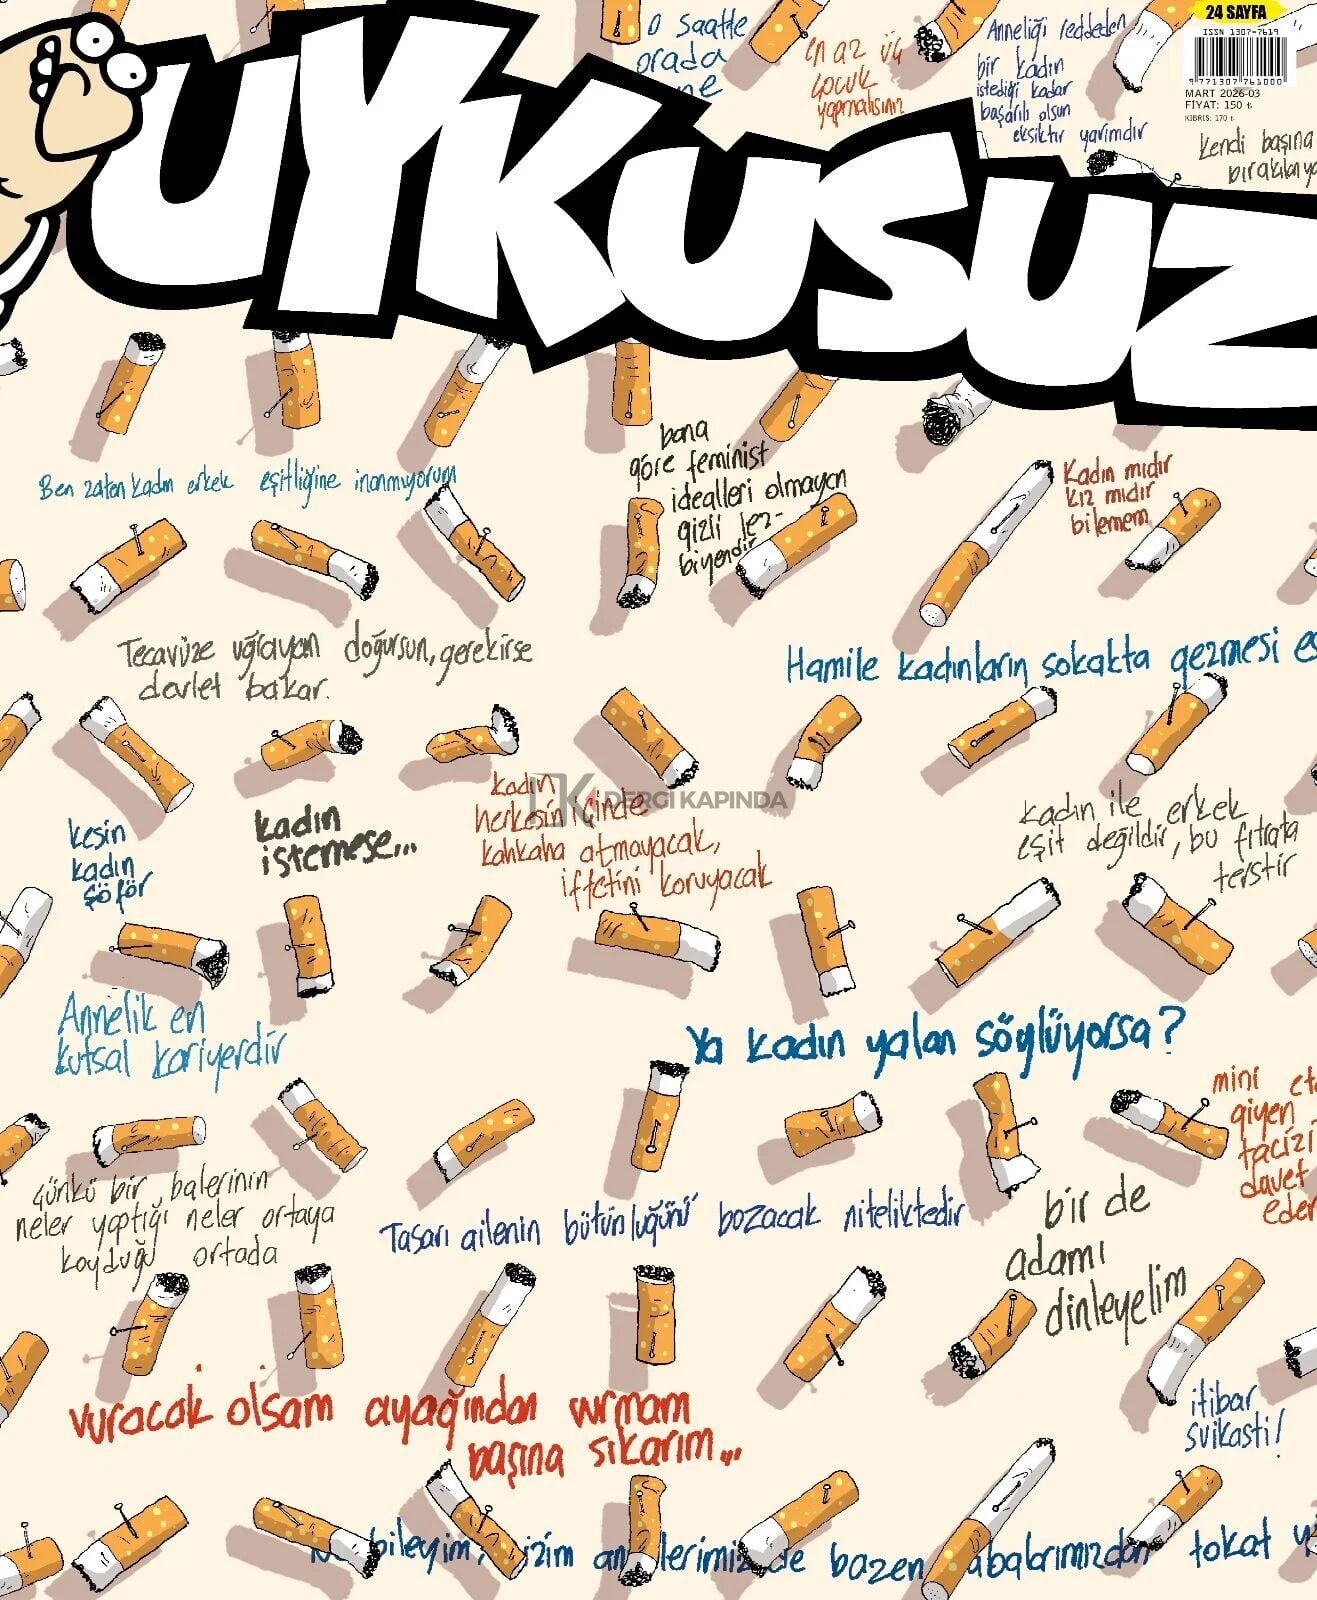 24 SAYFA
ISSN 1307-7619
9 771307 761000
MART 2026-03
FİYAT: 150 ₺
KIBRIS: 170 ₺
UYKUSUZ
O saatte
orada
ne
en az üç
çocuk
yapmalısınız
Anneliği reddeden
bir kadın
istediği kadar
başarılı olsun
eksiktir yarımdır
kendi başına
bırakılan
Ben zaten kadın erkek eşitliğine inanmıyorum
bana
göre feminist
idealleri olmayan
gizli lez-
biyendir
Kadın mıdır
kız mıdır
bilemem
Tecavüze uğrayan doğursun, gerekirse
devlet bakar.
Hamile kadınların sokakta gezmesi
kesin
kadın
şöför
kadın
istemese...
kadın
herkesin içinde
kahkaha atmayacak,
iffetini koruyacak
DK DERGİ KAPINDA
kadın ile erkek
eşit değildir, bu fıtrata
terstir
Annelik en
kutsal kariyerdir
Ya kadın yalan söylüyorsa?
mini
giyen
tacizi
davet
eder
Çünkü bir balerinin
neler yaptığı neler ortaya
koyduğu ortada
Tasarı ailenin bütünlüğünü bozacak niteliktedir
bir de
adamı
dinleyelim
vuracak olsam ayağından vurmam
başına sıkarım...
itibar
suikasti!
bileyim, bazen tokat